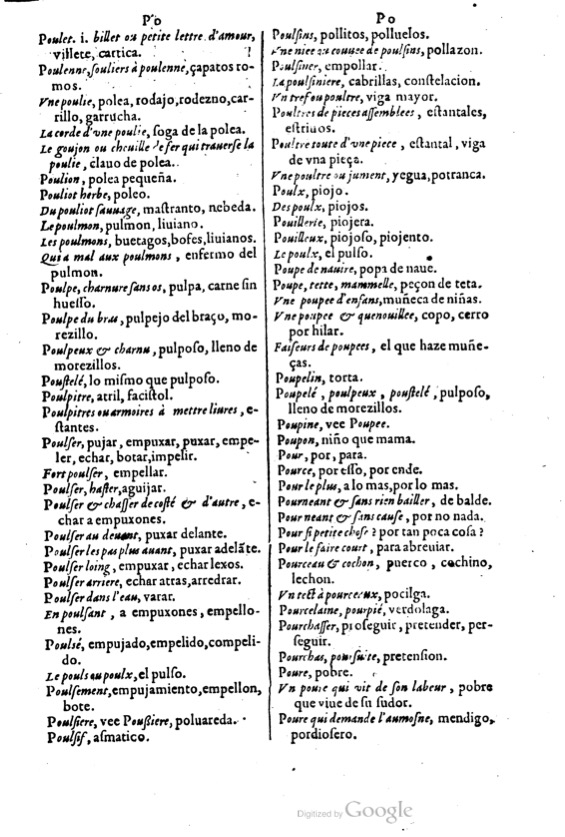 Po
Poulet. i. billet ou petite lettre d'amour,
villete, cartica.
Poulenne, souliers à poulenne, çapatos ro-
mos.
Vne poulie, polea, rodajo, rodezno, car-
rillo, garrucha.
La corde d'vne poulie, soga de la polea.
Le goujon ou cheuille de fer qui trauerse la
poulie, clauo de polea.
Poulion, polea pequeña.
Pouliot herbe, poleo.
Du pouliot sauuage, mastranto, nebeda.
Le poulmon, pulmon, liuiano.
Les poulmons, buetagos, bofes, liuianos.
Qui a mal aux poulmons, enfermo del
pulmon.
Poulpe, charnure sans os, pulpa, carne sin
huesso.
Poulpe du bras, pulpejo del braço, mo-
rezillo.
Poulpeux & charnu, pulposo, lleno de
morezillos.
Poustelé, lo mismo que pulposo.
Poulpitre, atril, facistol.
Poulpitres ou armoires à mettre liures, e-
stantes.
Poulser, pujar, empuxar, puxar, empe-
ler, echar, botar, impelir.
Fort poulser, empellar.
Poulser, haster, aguijar.
Poulser & chasser de costé & d'autre, e-
char a empuxones.
Poulser au deuant, puxar delante.
Poulser les pas plus auant, puxar adelãte.
Poulser loing, empuxar, echar lexos.
Poulser arriere, echar atras, arredrar.
Poulser dans l'eau, varar.
En poulsant, a empuxones, empello-
nes.
Poulsé, empujado, empelido, compeli-
do.
Le pouls ou poulx, el pulso.
Poulsement, empujamiento, empellon,
bote.
Poulsiere, vee Poussiere, poluareda.
Poulsif, asmatico.
Po
Poulsins, pollitos, polluelos.
Vne niee ou couuee de poulsins, pollazon.
Poulsiner, empollar.
La poulsiniere, cabrillas, constelacion.
Vn tref ou poultre, viga mayor.
Poultres de pieces assemblees, estantales,
estriuos.
Poultre toute d'vne piece, estantal, viga
de vna pieça.
Vne poultre ou jument, yegua, potranca.
Poulx, piojo.
Des poulx, piojos.
Pouillerie, piojera.
Pouilleux, piojoso, piojento.
Le poulx, el pulso.
Poupe de nauire, popa de naue.
Poupe, tette, mammelle, peçon de teta.
Vne poupee d'enfans, muñeca de niñas.
Vne poupee & quenouillee, copo, cerro
por hilar.
Faiseurs de poupees, el que haze muñe-
ças.
Poupelin, torta.
Poupelé, poulpeux, poustelé, pulposo,
lleno de morezillos.
Poupine, vee Poupee.
Poupon, niño que mama.
Pour, por, para.
Pource, por esso, por ende.
Pour le plus, a lo mas, por lo mas.
Pour neant & sans rien bailler, de balde.
Pour neant & sans cause, por no nada.
Pour si petite chose? por tan poca cosa?
Pour le faire court, para abreuiar.
Pourceau & cochon, puerco, cochino,
lechon.
Vn tect à pourceaux, pocilga.
Pourcelaine, pourpié, verdolaga.
Pourchasser, proseguir, pretender, per-
seguir.
Pourchas, poursuite, pretension.
Poure, pobre.
Vn poure qui vit de son labeur, pobre
que viue de su sudor.
Poure qui demande l'aumosne, mendigo,
pordiosero.
Digitized by Google